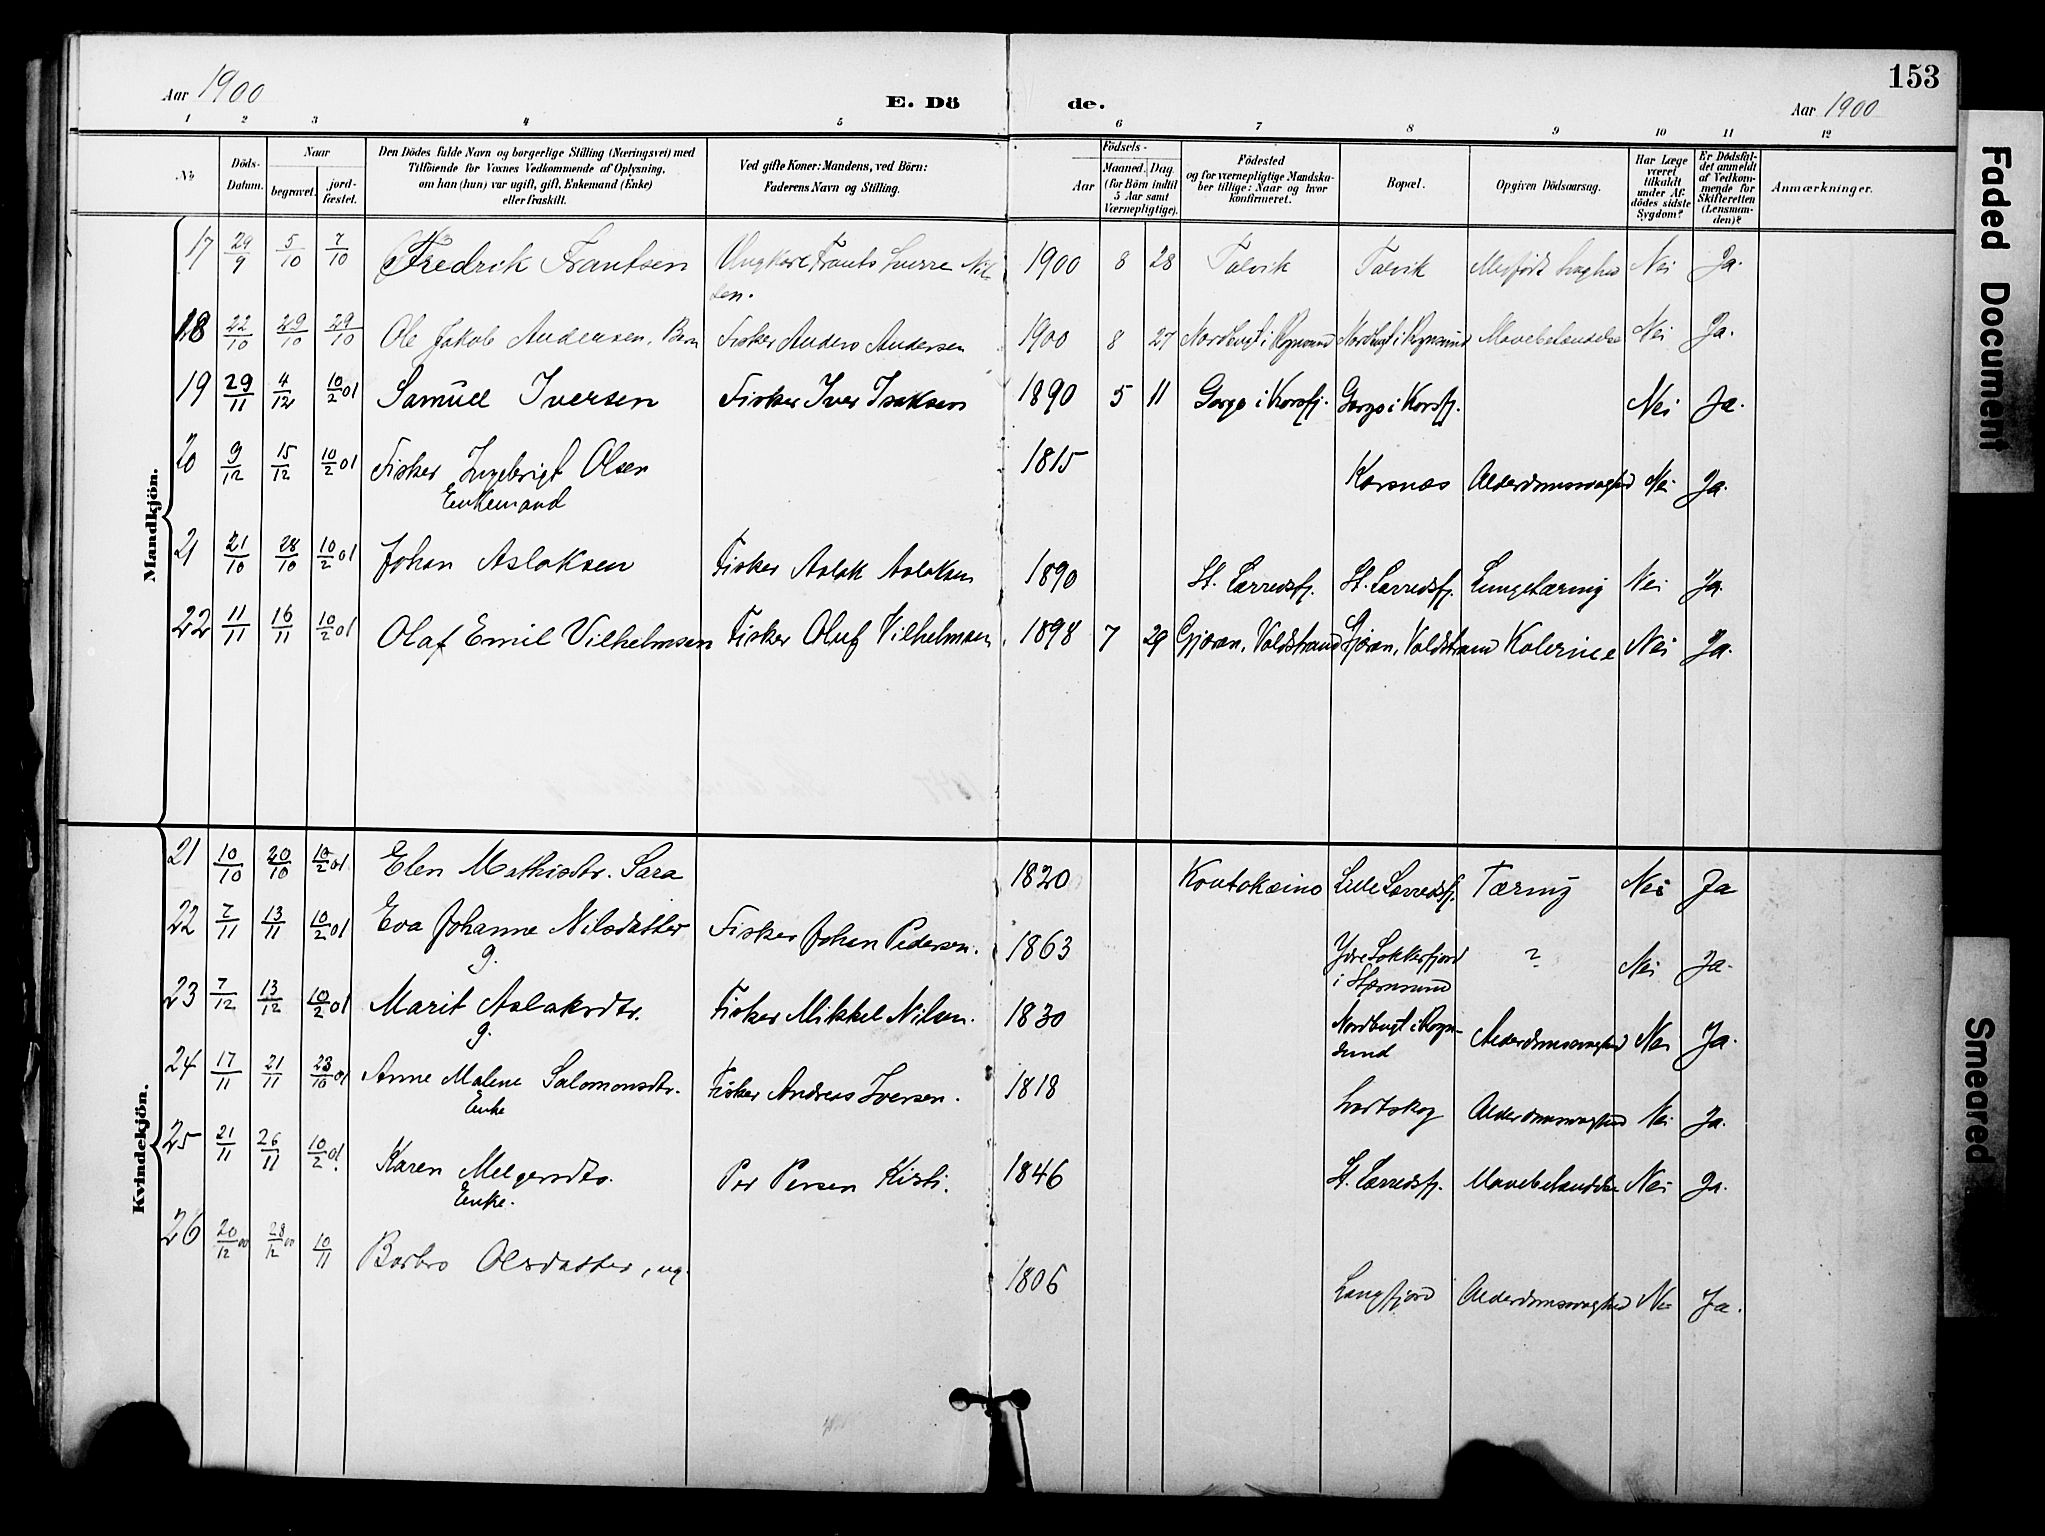 153
Aar 1900
E. Dö de.
Aar 1900
1 2 3 4 5 6 7 8 9 10 11 12
No
Döds-Datum.
Naar
begravet.
jord-fæstet.
Den Dödes fulde Navn og borgerlige Stilling (Næringsvei) med
Tilföiende for Voxnes Vedkommende af Oplysning,
om han (hun) var ugift, gift, Enkemand (Enke)
eller fraskilt.
Ved gifte Koner: Mandens, ved Börn:
Faderens Navn og Stilling.
Födsels-
Aar
Maaned. Dag.
(for Börn indtil
5 Aar samt
Værnepligtige).
Födested
og for værnepligtige Mandska-
ber tillige: Naar og hvor
konfirmeret.
Bopæl.
Opgiven Dödsaarsag.
Har Læge
været
tilkaldt
under Af-
dödes sidste
Sygdom?
Er Dödsfal-
det anmeldt
af Vedkom-
mende for
Skifteretten
(Lensman-
den)?
Anmærkninger.
Mandkjön.
17 29/9 5/10 7/10 Fredrik Frantsen Ungkarl Frants Sverre Nil- 1900 8 28 Talvik Talvik Medfödt Svaghed Nei Ja.
sen.
18 22/10 29/10 29/10 Ole Jakob Andersen, Barn Fisker Anders Andersen 1900 8 27 Nordbugt i Rognsund Nordbugt i Rognsund Mavebetændelse Nei Ja.
19 29/11 4/12 10/2 01 Samuel Iversen Fisker Iver Isaksen 1890 5 11 Gorgo i Korsfj. Gorgo i Korsfj. Nei Ja.
20 9/12 15/12 10/2 01 Fisker Ingebrigt Olsen 1815 Korsnæs Alderdomssvaghed Nei Ja.
Enkemand
21 21/10 28/10 10/2 01 Johan Aslaksen Fisker Aslak Aslaksen 1890 St. Lerredsfj. St. Lerredsfj. Lungetæring Nei Ja.
22 11/11 16/11 10/2 01 Olaf Emil Vilhelmsen Fisker Oluf Vilhelmsen. 1898 7 29 Gjøvan, Valdstrand Gjøvan, Valdstrand Kolerine Nei Ja.
Kvindekjön.
21 10/10 20/10 10/2 01 Elen Mathisdtr. Sara 1820 Koutokæino Lille Lerredsfj. Tæring Nei Ja
22 7/11 13/11 10/2 01 Eva Johanne Nilsdatter Fisker Johan Pedersen. 1863 Ydre Lokkerfjord ? Nei Ja.
g. i Stjernsund
23 7/12 13/12 10/2 01 Marit Aslaksdtr. Fisker Mikkel Nilsen. 1830 Nordbugt i Rogn- Alderdomssvaghed Nei Ja.
g. sund
24 17/11 21/11 23/10 01 Anne Malene Salomonsdtr. Fisker Andreas Iversen. 1818 Svartskog Alderdomssvaghed Nei Ja.
Enke
25 21/11 26/11 10/2 01. Karen Melgersdtr. Per Persen Kisti. 1846 St. Lerredsfj. Mavebetændelse Nei Ja.
Enke.
26 20/12 00 28/12 00 10/11 Barbro Olsdatter, ug. 1806 Langfjord Alderdomssvaghed Nei Ja.
Faded Document
Smeared